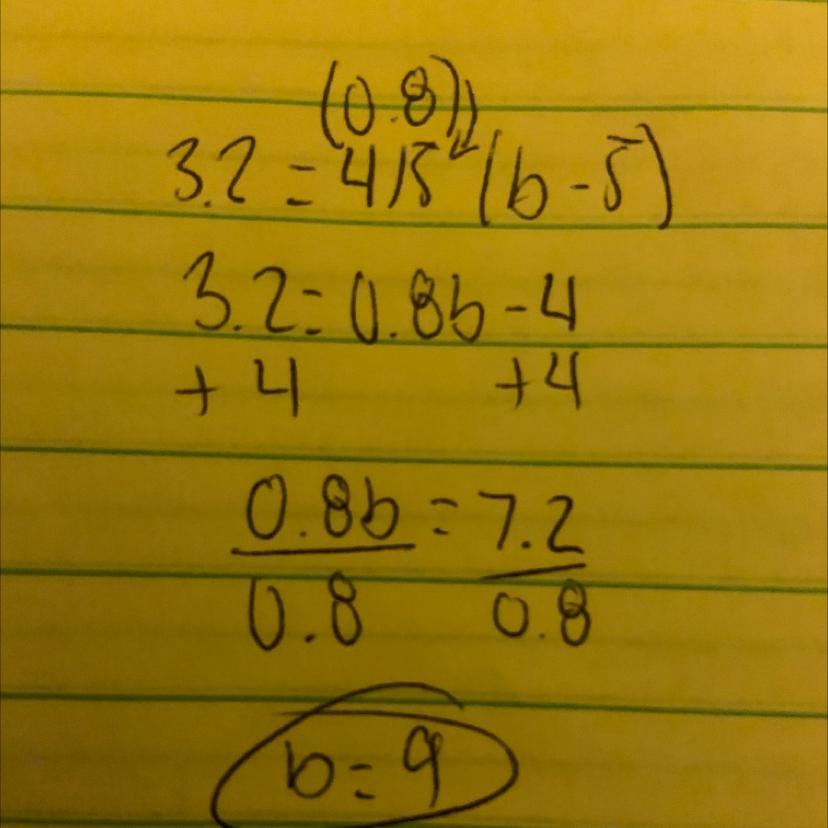 (0.8)
3.2 = 4/5 (b - 5)
3.2 = 0.8b - 4
+ 4 + 4
0.8b = 7.2
0.8 0.8
b = 9